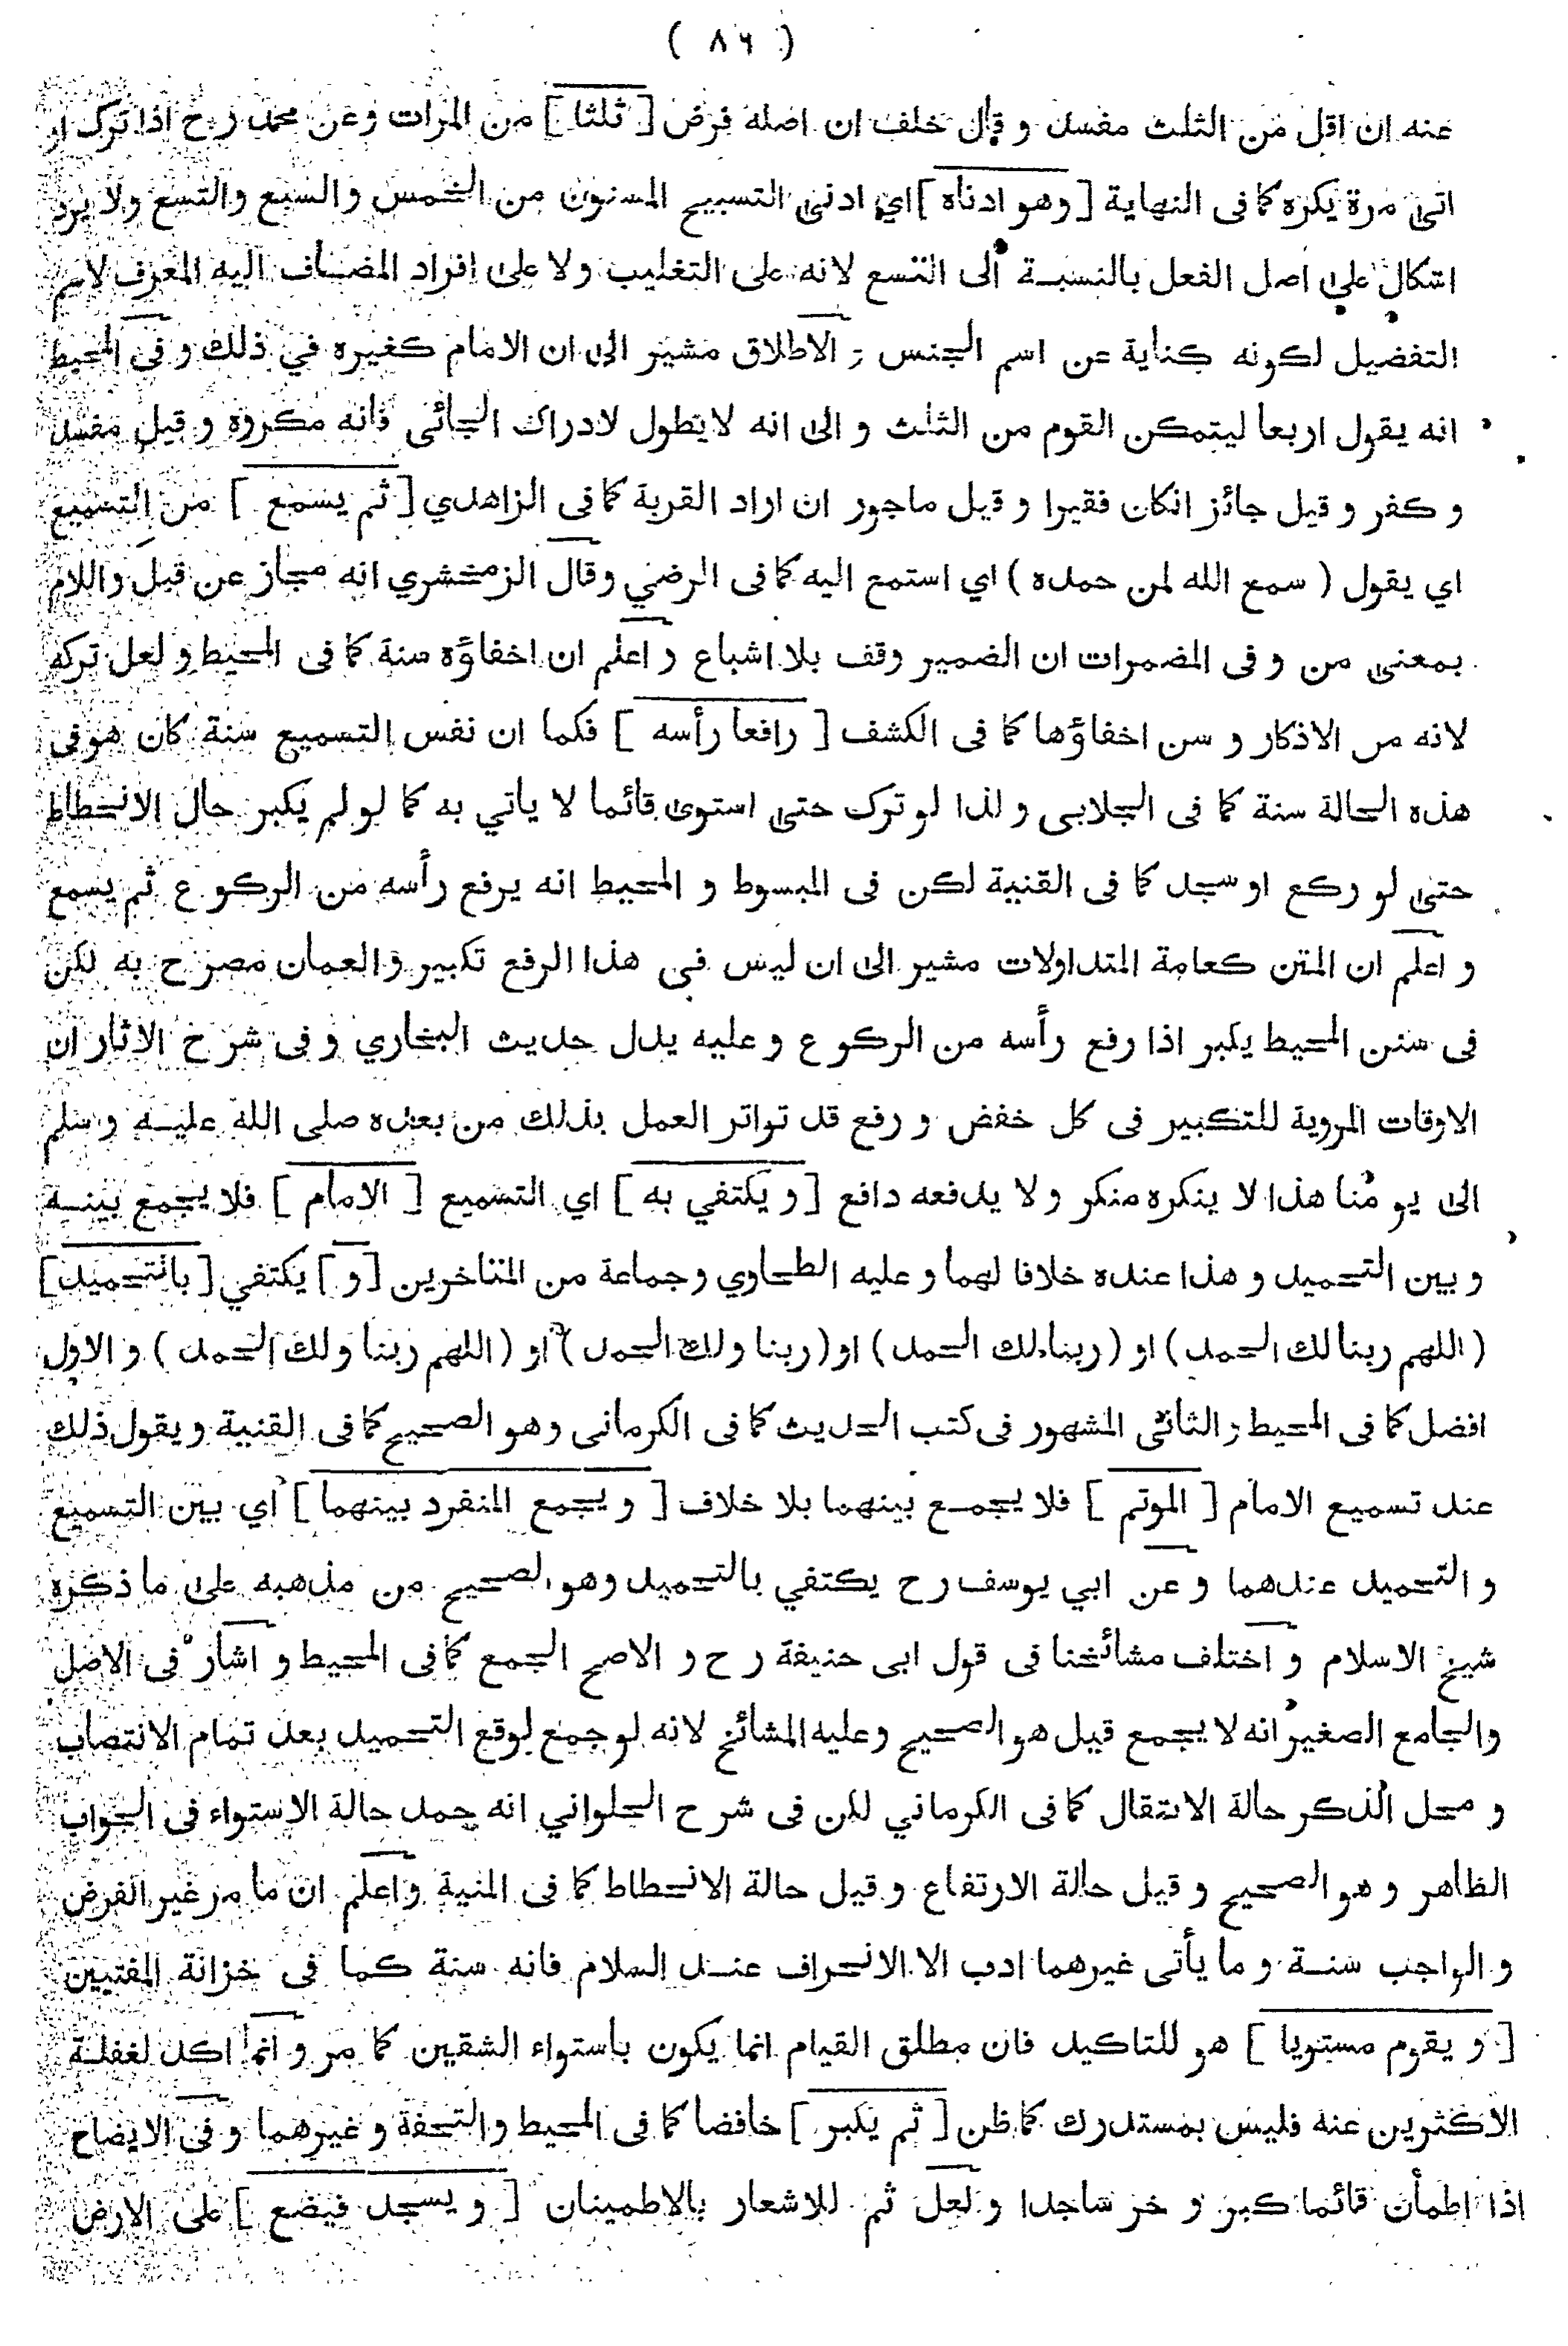 ( ٨٦ )
عنه ان اقل من الثلث مفسد و قال خلف ان اصله فرض [ ثلثا ] من المرات وعن محمد رح اذا ترك او
اتى مرة يكره كما فى النهاية [ وهو ادناه ] اي ادنى التسبيح المسنون من الخمس والسبع والتسع ولا يرد
اشكال على اصل الفعل بالنسبة الى التسع لانه على التغليب ولا على افراد المضاف اليه المعرف لاسم
التفضيل لكونه كناية عن اسم الجنس و الاطلاق مشير الى ان الامام كغيره في ذلك و فى المحيط
انه يقول اربعا ليتمكن القوم من الثلث و الى انه لا يطول لادراك الجائى فانه مكروه و قيل مفسد
و كفر و قيل جائز انكان فقيرا و قيل ماجور ان اراد القربة كما فى الزاهدي [ ثم يسمع ] من التسميع
اي يقول ( سمع الله لمن حمده ) اي استمع اليه كما فى الرضي وقال الزمخشري انه مجاز عن قبل واللام
بمعنى من و فى المضمرات ان الضمير وقف بلا اشباع و اعلم ان اخفاؤه سنة كما فى المحيط و لعل تركه
لانه من الاذكار و سن اخفاؤها كما فى الكشف [ رافعا رأسه ] فكما ان نفس التسميع سنة كان هو فى
هذه الحالة سنة كما فى الجلابى و لذا لو ترك حتى استوى قائما لا ياتي به كما لو لم يكبر حال الانحطاط
حتى لو ركع او سجد كما فى القنية لكن فى المبسوط و المحيط انه يرفع رأسه من الركوع ثم يسمع
و اعلم ان المتن كعامة المتداولات مشير الى ان ليس في هذا الرفع تكبير و العمان مصرح به لكن
فى سنن المحيط يكبر اذا رفع رأسه من الركوع و عليه يدل حديث البخاري و فى شرح الاثار ان
الاوقات المروية للتكبير فى كل خفض و رفع قد تواتر العمل بذلك من بعده صلى الله عليه و سلم
الى يومنا هذا لا ينكره منكر و لا يدفعه دافع [ و يكتفي به ] اي التسميع [ الامام ] فلا يجمع بينه
و بين التحميد و هذا عنده خلافا لهما و عليه الطحاوي و جماعة من المتاخرين [ و ] يكتفي [ بالتحميد ]
( اللهم ربنا لك الحمد ) او ( ربنا لك الحمد ) او ( ربنا و لك الحمد ) او ( اللهم ربنا و لك الحمد ) و الاول
افضل كما فى المحيط و الثانى المشهور فى كتب الحديث كما فى الكرمانى وهو الصحيح كما فى القنية و يقول ذلك
عند تسميع الامام [ الموتم ] فلا يجمع بينهما بلا خلاف [ و يجمع المنفرد بينهما ] اي بين التسميع
و التحميد عندهما و عن ابي يوسف رح يكتفي بالتحميد وهو الصحيح من مذهبه على ما ذكره
شيخ الاسلام و اختلف مشائخنا فى قول ابى حنيفة رح و الاصح الجمع كما فى المحيط و اشار فى الاصل
والجامع الصغير انه لا يجمع قيل هو الصحيح وعليه المشائخ لانه لو جمع لوقع التحميد بعد تمام الانتصاب
و محل الذكر حالة الانتقال كما فى الكرماني لكن فى شرح الحلواني انه حمد حالة الاستواء فى الجواب
الظاهر و هو الصحيح و قيل حالة الارتفاع و قيل حالة الانحطاط كما فى المنية و اعلم ان ما مر غير الفرض
و الواجب سنة و ما يأتى غيرهما ادب الا الانحراف عند السلام فانه سنة كما فى خزانة المفتيين
[ و يقوم مستويا ] هو للتاكيد فان مطلق القيام انما يكون باستواء الشقين كما مر و انما اكد لغفلة
الاكثرين عنه فليس بمستدرك كما ظن [ ثم يكبر ] خافضا كما فى المحيط والتحفة و غيرهما و فى الايضاح
اذا اطمأن قائما كبر و خر ساجدا و لعل ثم للاشعار بالاطمينان [ و يسجد فيضع ] على الارض